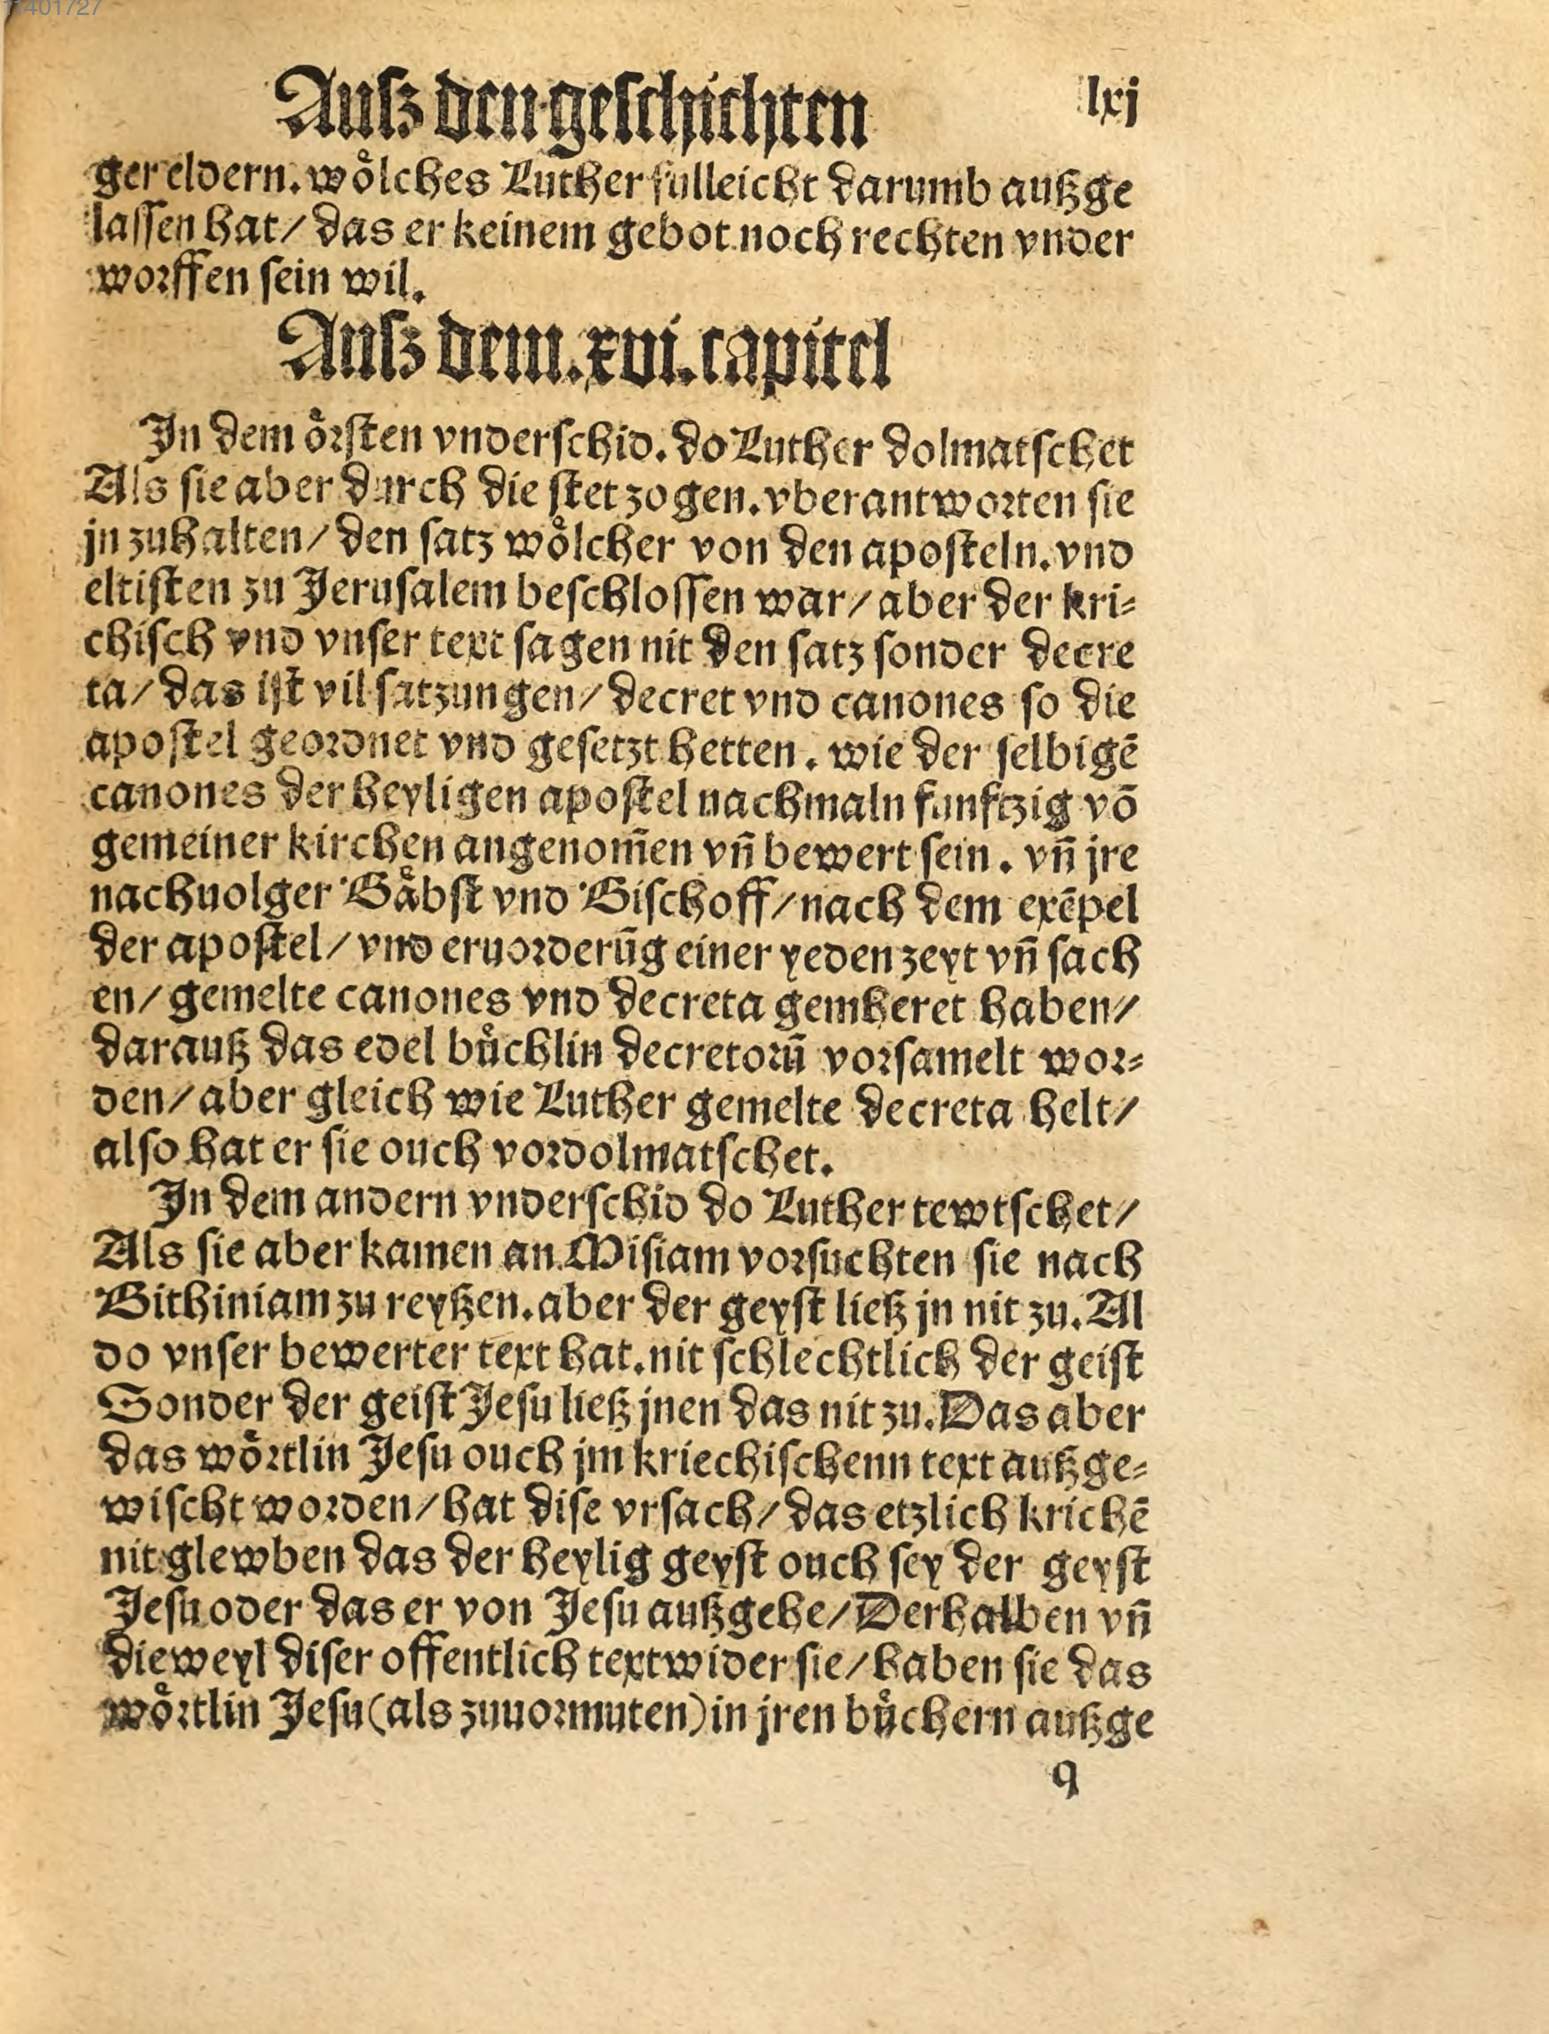 11401727
Auſz den geſchichten lxj
ger eldern. woͤlches Luther fulleicht darumb außge
laſſen hat/ das er keinem gebot noch rechten vnder
worffen ſein wil.
Auſz dem.xvi.capitel
In dem oͤrſten vnderſchid. do Luther dolmatſchet
Als ſie aber durch die ſtet zogen. vberantworten ſie
jn zuhalten/ den ſatz woͤlcher von den apoſteln. vnd
eltiſten zu Jeruſalem beſchloſſen war/ aber der kri⸗
chiſch vnd vnſer text ſagen nit den ſatz ſonder decre
ta/ das iſt vil ſatzungen/ decret vnd canones ſo die
apoſtel geordnet vnd geſetzt hetten. wie der ſelbigē
canones der heyligen apoſtel nachmaln funftzig vō
gemeiner kirchen angenom̄en vn̄ bewert ſein. vn̄ jre
nachuolger Baͤbſt vnd Biſchoff/ nach dem exēpel
der apoſtel/ vnd eruorderūg einer yeden zeyt vn̄ ſach
en/ gemelte canones vnd decreta gemheret haben/
darauß das edel buͤchlin decretorū vorſamelt wor⸗
den/ aber gleich wie Luther gemelte decreta helt/
alſo hat er ſie ouch vordolmatſchet.
In dem andern vnderſchid do Luther tewtſchet/
Als ſie aber kamen an Miſiam vorſuchten ſie nach
Bithiniam zu reyßen. aber der geyſt ließ jn nit zu. Al
do vnſer bewerter text hat. nit ſchlechtlich der geiſt
Sonder der geiſt Jeſu ließ jnen das nit zu. Das aber
das woͤrtlin Jeſu ouch jm kriechiſchenn text außge⸗
wiſcht worden/ hat diſe vrſach/ das etzlich krichē
nit glewben das der heylig geyſt ouch ſey der geyſt
Jeſu oder das er von Jeſu außgehe/ Derhalben vn̄
dieweyl diſer offentlich text wider ſie/ haben ſie das
woͤrtlin Jeſu (als zuuormuten) in jren buͤchern außge
q